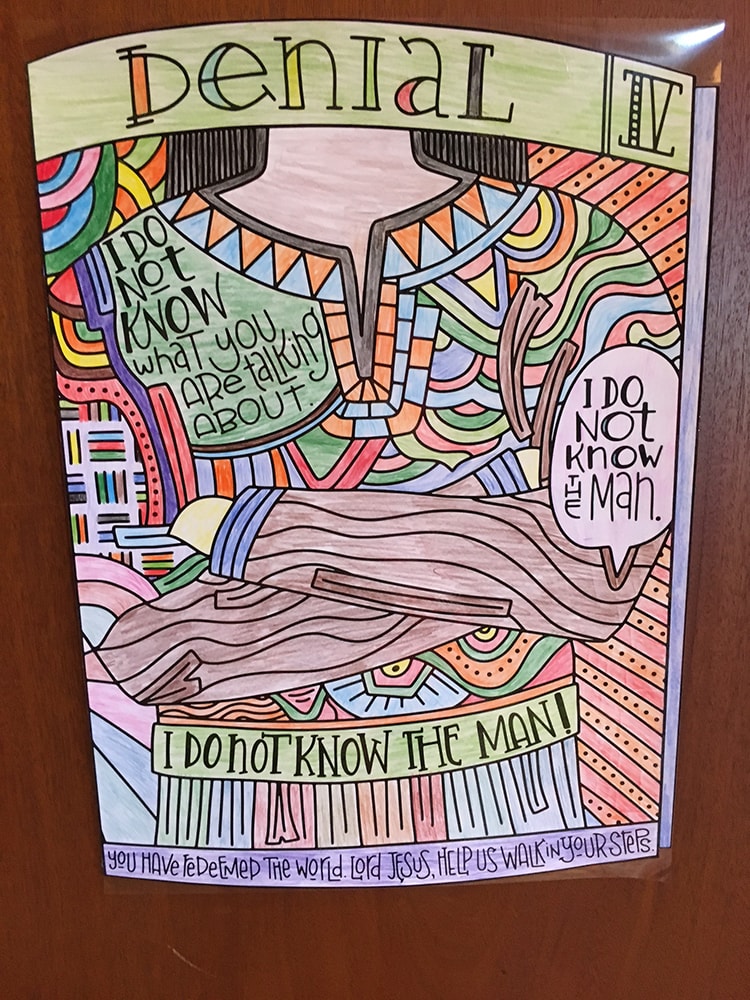 DENIAL
IV
I DO
NOT
KNOW
what you
ARE talking
ABOUT.
I DO
NOt
KNOW
THE MAN.
I DO NOT KNOW THE MAN!
YOU HAVE REDEEMED THE WORLD. LORD JESUS, HELP US WALK IN YOUR STEPS.